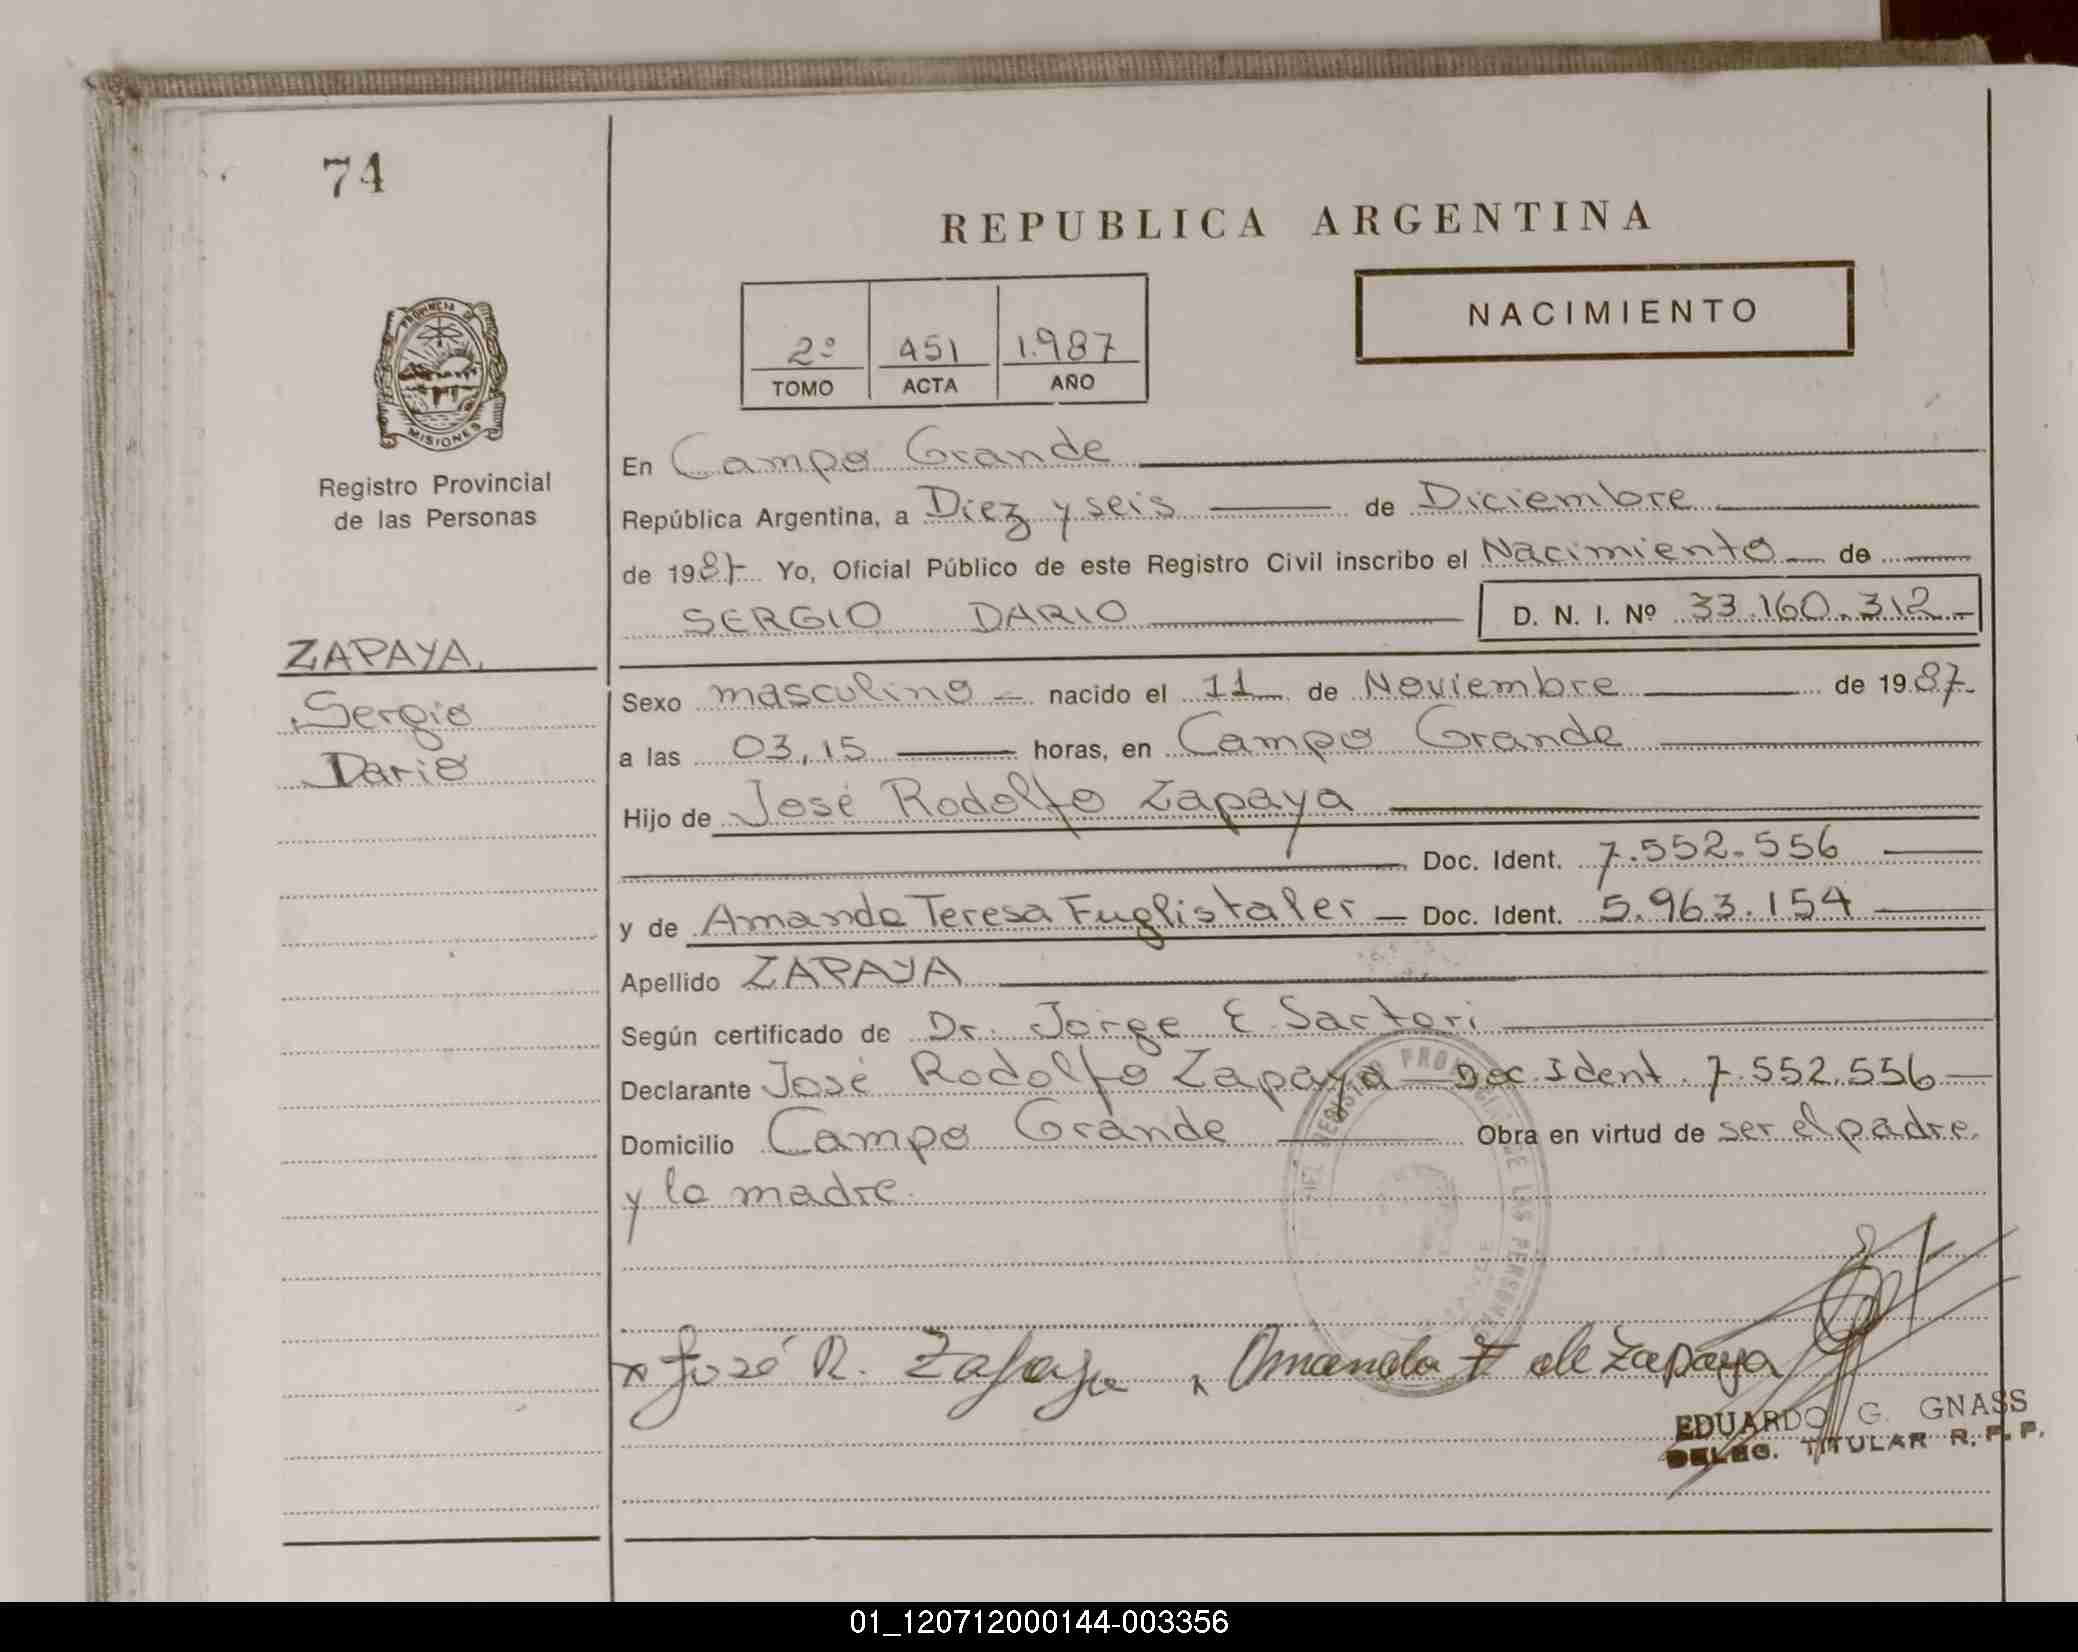 74
REPUBLICA ARGENTINA
NACIMIENTO
2º 451 1.987
TOMO ACTA AÑO
PROVINCIA DE
MISIONES
Registro Provincial
de las Personas
ZAPAYA,
Sergio
Dario
En Campo Grande
República Argentina, a Diez y seis de Diciembre
de 1987 Yo, Oficial Público de este Registro Civil inscribo el Nacimiento de
SERGIO DARIO D. N. I. Nº 33.160.312.-
Sexo masculino nacido el 11 de Noviembre de 1987.
a las 03,15 horas, en Campo Grande
Hijo de José Rodolfo Zapaya
Doc. Ident. 7.552.556
y de Amanda Teresa Fuglistaler Doc. Ident. 5.963.154
Apellido ZAPAYA
Según certificado de Dr. Jorge E. Sartori
Declarante José Rodolfo Zapaya Doc. Ident. 7.552.556
Domicilio Campo Grande Obra en virtud de ser el padre
y la madre.
REGISTRO PROVINCIAL DE LAS PERSONAS
José R. Zapaya Amanda F de Zapaya
EDUARDO G. GNASS
DELEG. TITULAR R. P. P.
01_120712000144-003356